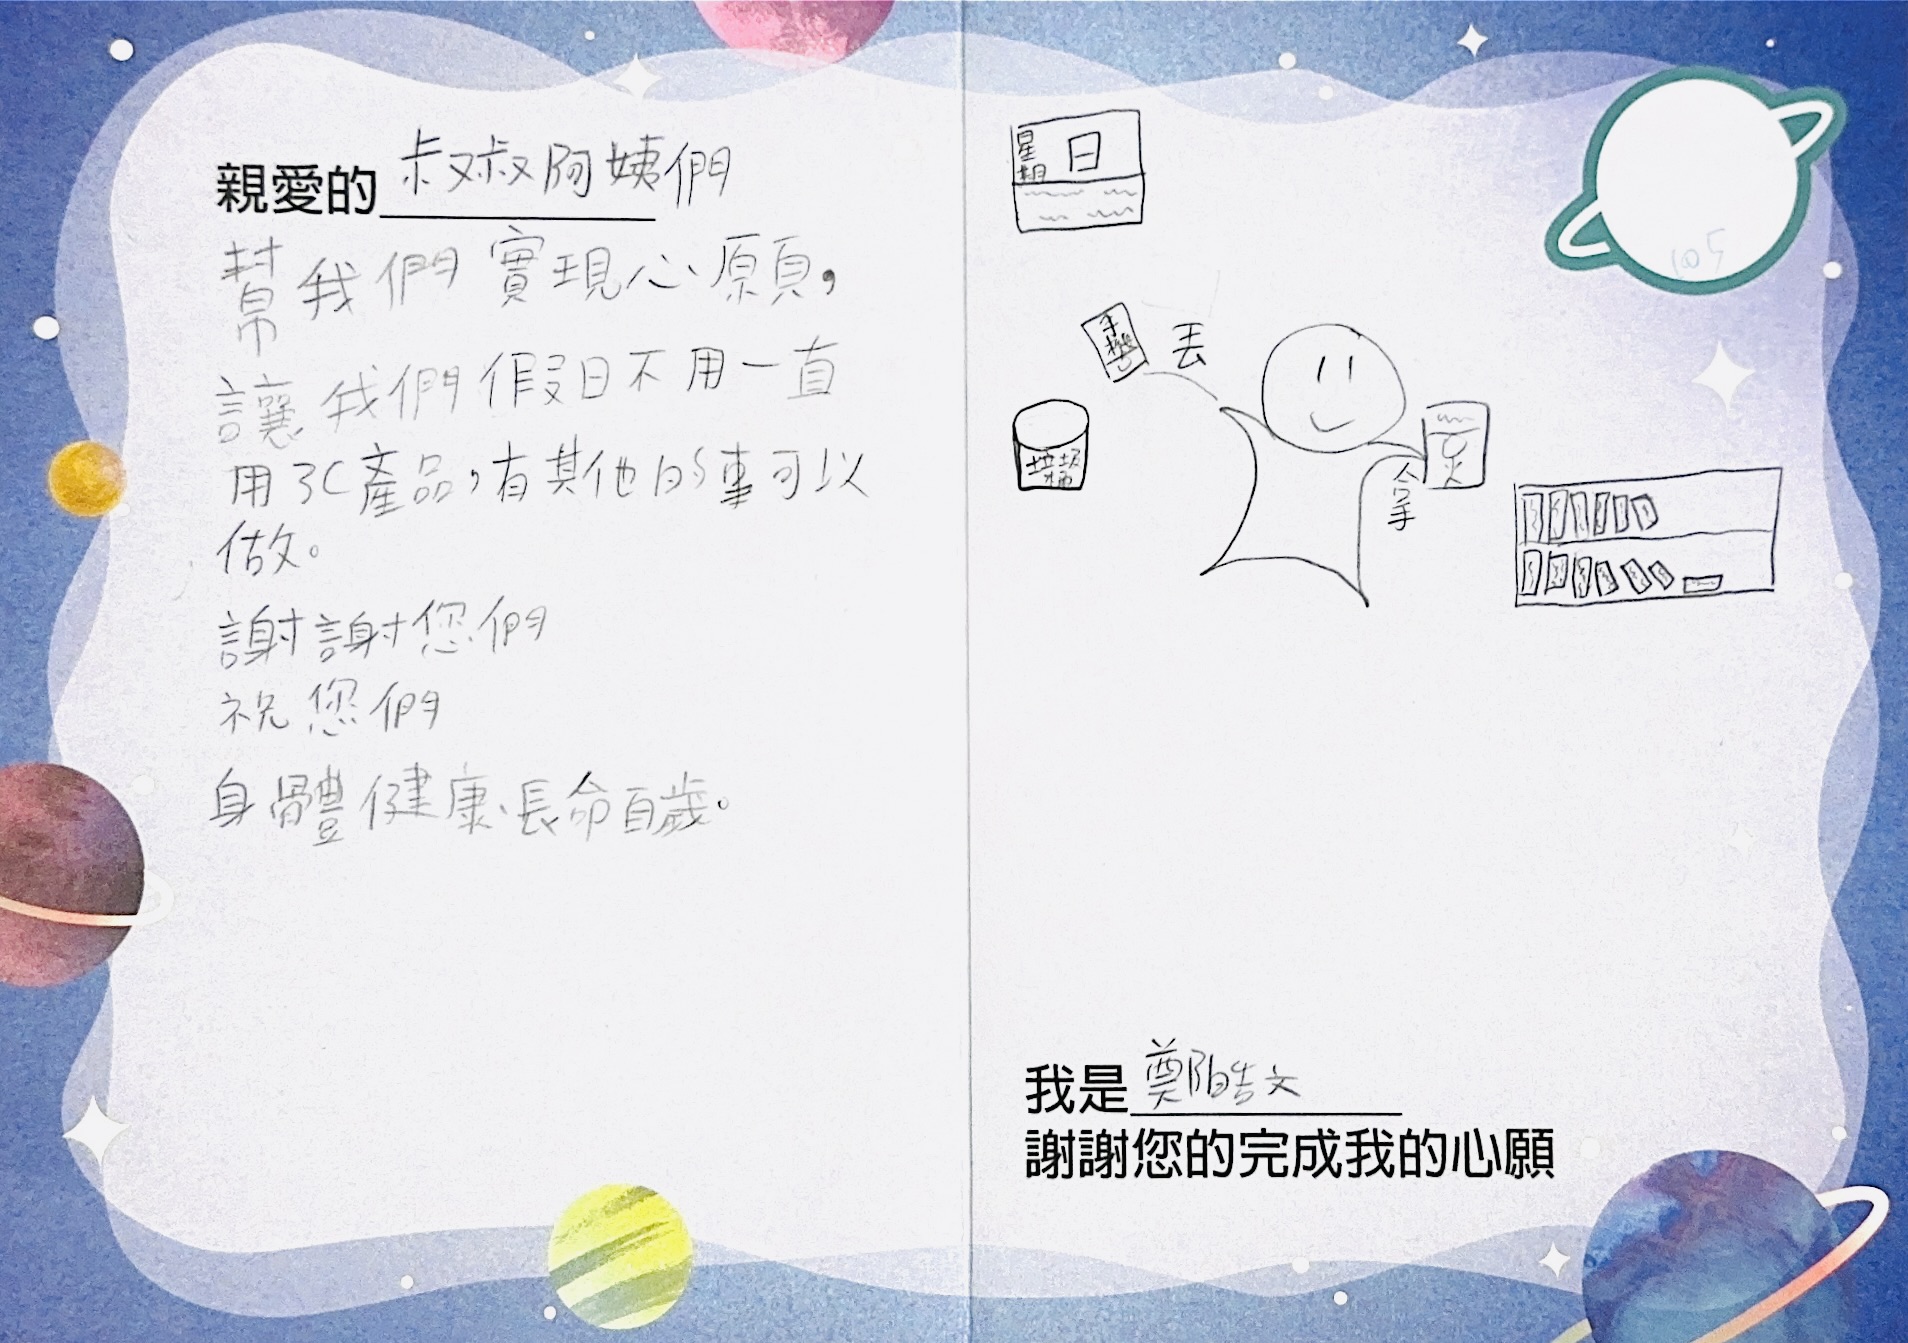 親愛的叔叔阿姨們
幫我們實現心願,
讓我們假日不用一直
用3C產品,有其他的事可以
做。
謝謝您們
祝您們
身體健康、長命百歲。
星期 日
手機 丟
垃圾桶
拿
105
我是鄭皓文
謝謝您的完成我的心願